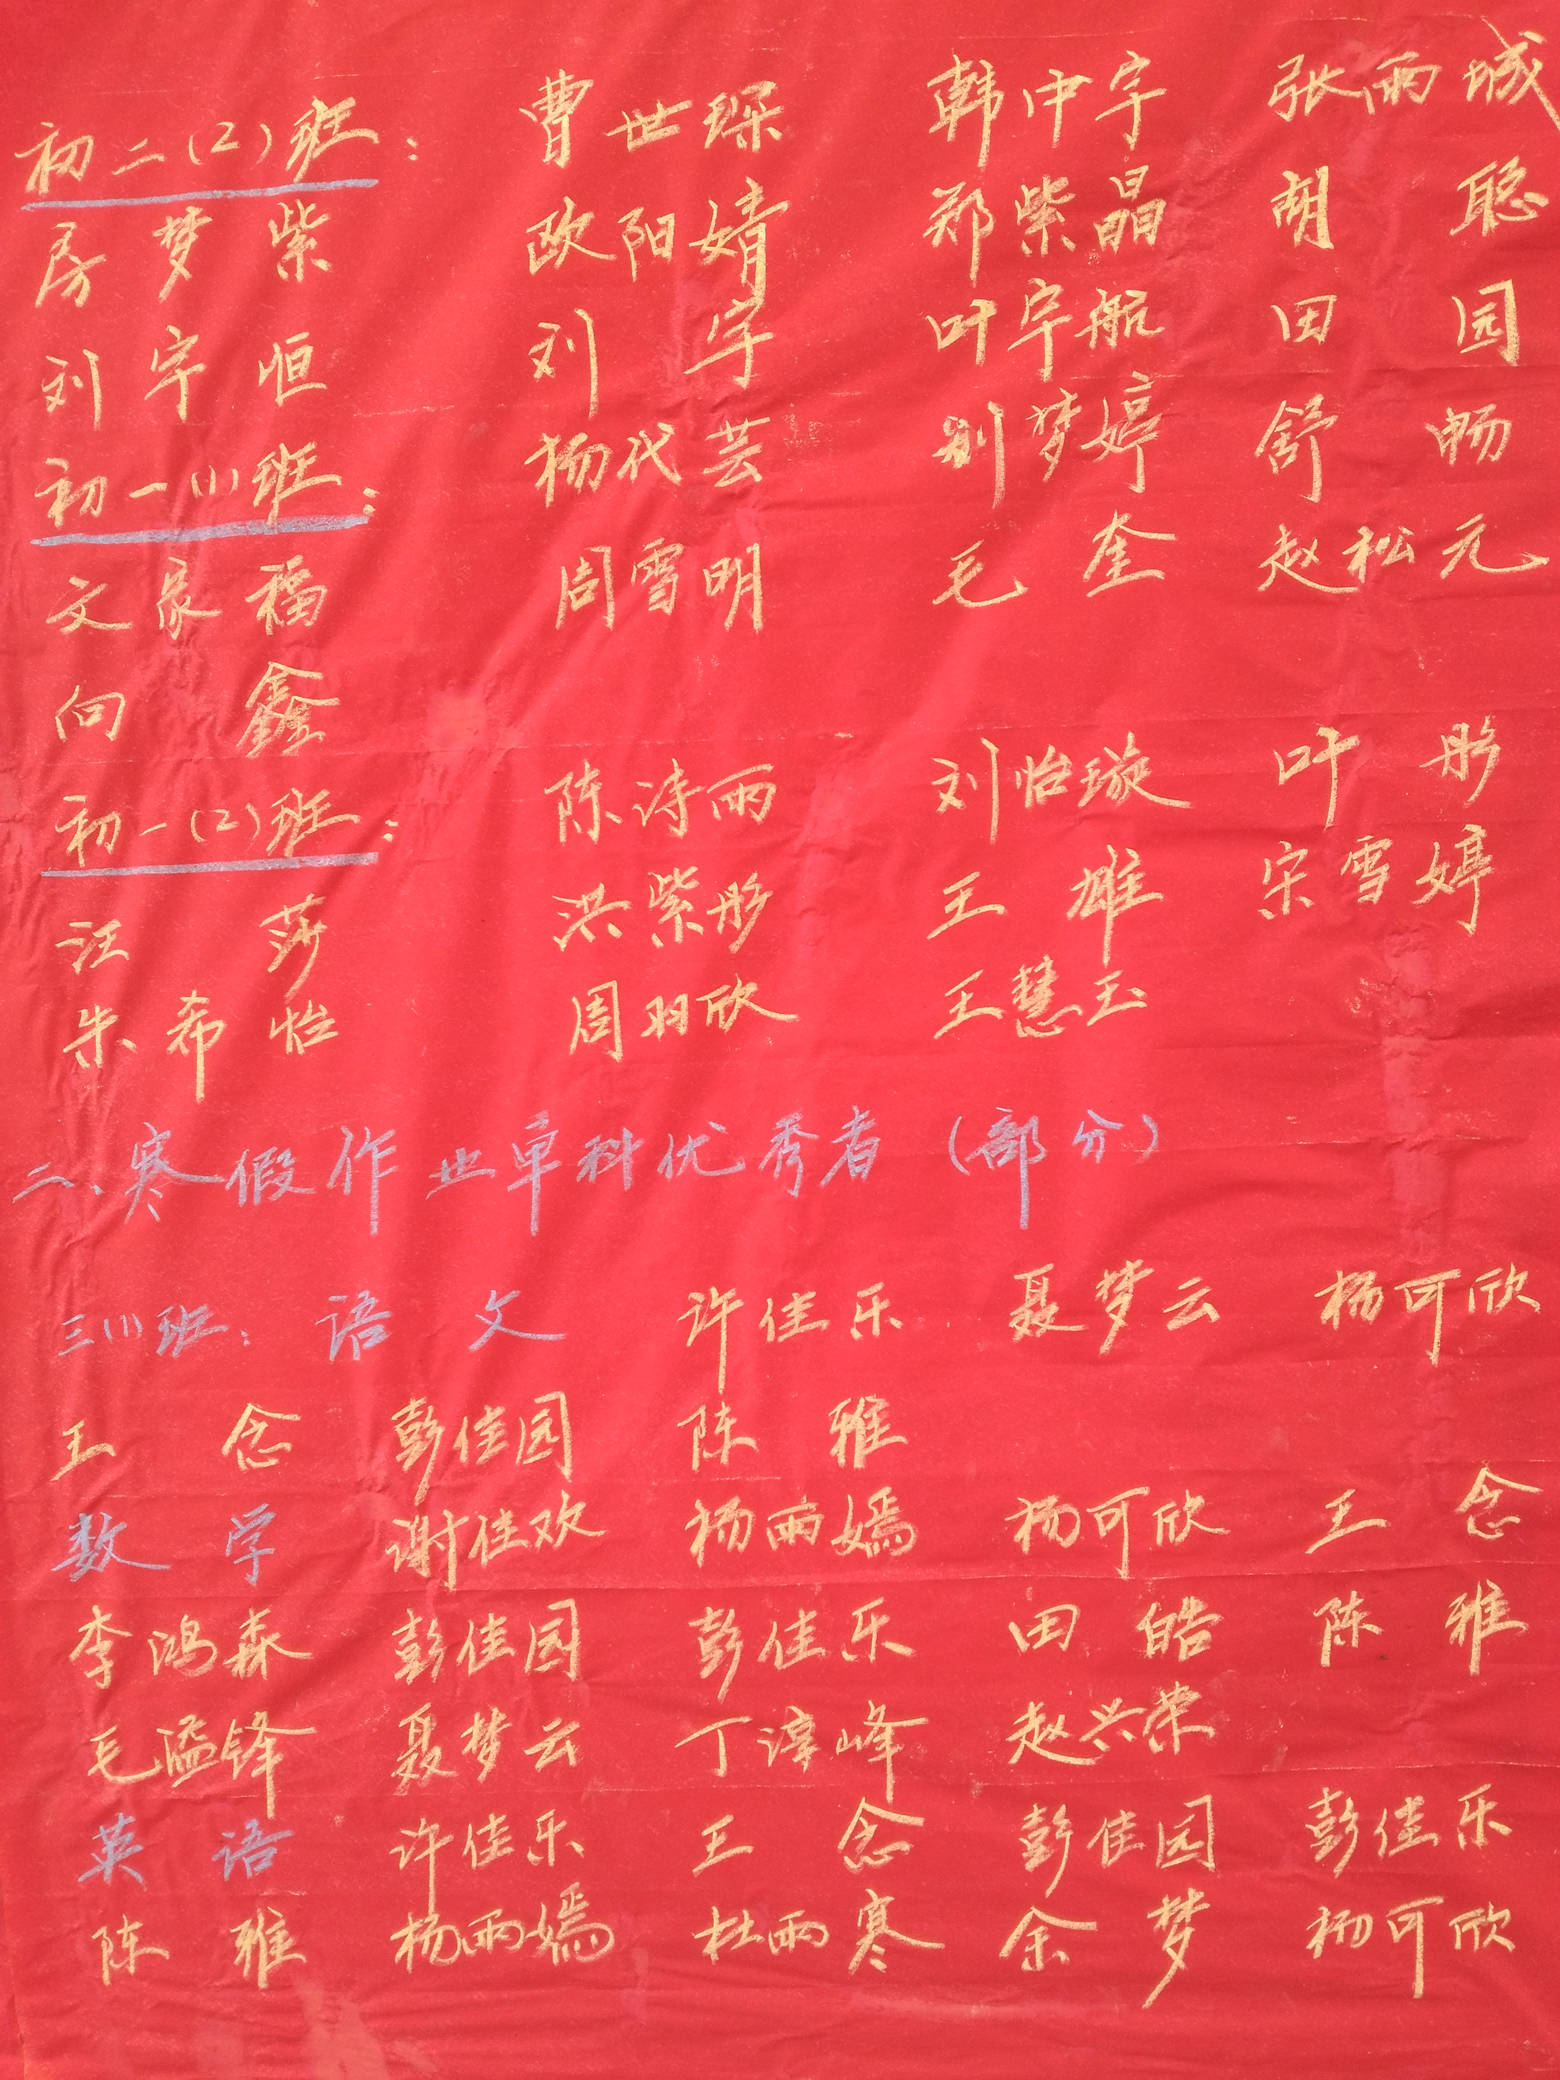 初二(2)班： 曹世琛 韩中宇 张雨城
房梦紫 欧阳婧 郑紫晶 胡聪
刘宇恒 刘宇 叶宇航 田园
初一(1)班： 杨代芸 别梦婷 舒畅
文家福 周雪明 毛奎 赵松元
向鑫
初一(2)班： 陈诗雨 刘怡璇 叶彤
汪莎 洪紫彤 王雄 宋雪婷
朱希怡 周羽欣 王慧玉
二、寒假作业单科优秀者(部分)
三(1)班： 语文 许佳乐 聂梦云 杨可欣
王念 彭佳园 陈雅
数学 谢佳欢 杨雨嫣 杨可欣 王念
李鸿森 彭佳园 彭佳乐 田皓 陈雅
毛溢锋 聂梦云 丁淳峰 赵兴荣
英语 许佳乐 王念 彭佳园 彭佳乐
陈雅 杨雨嫣 杜雨寒 余梦 杨可欣